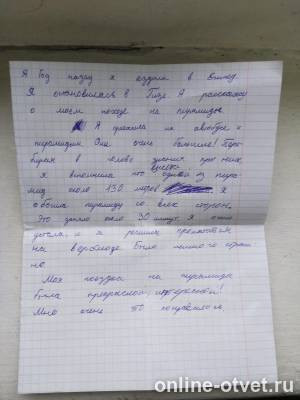 Я Год назад я ездила в Египет.
Я остановилась в Гизе. Я расскажу
о моем походе на пирамиды.
Я приехала на автобусе к
пирамидам. Они очень большие!
в голове знания про них,
я вспомнила что высота одной из пира-
мид около 130 метров. Я
обошла пирамиду со всех сторон.
Это заняло около 30 минут. Я очень
устала, и я решила прокатиться
на верблюде. Было немного страш-
но.
Моя поездка на пирамиды
была прекрасной, интересной!
Мне очень понравилось.
online-otvet.ru